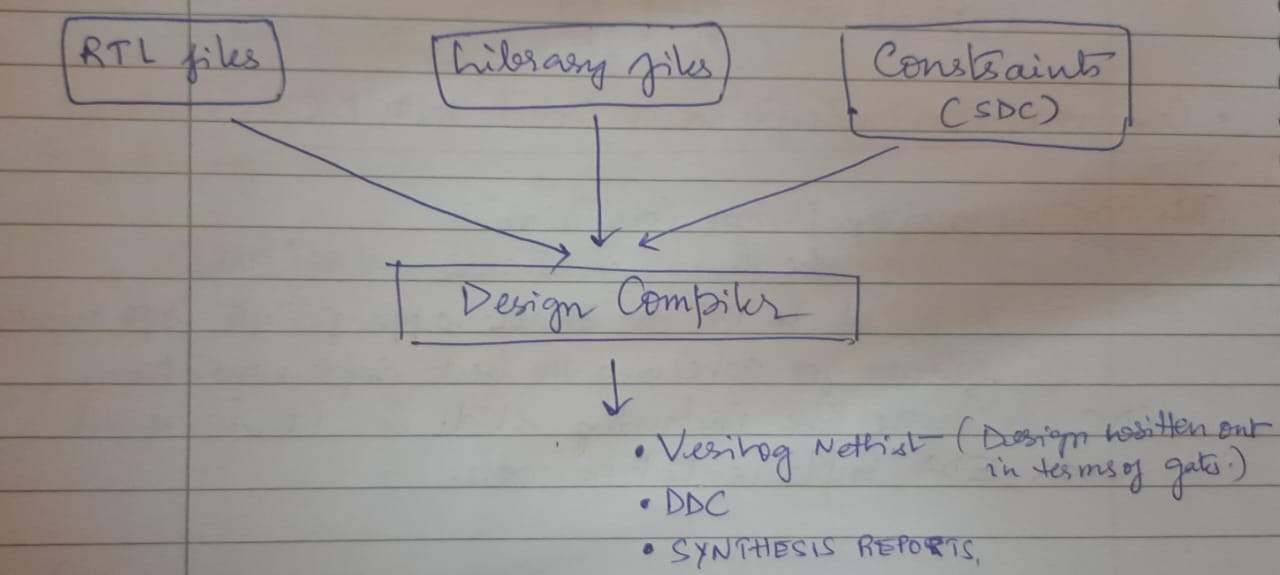 RTL files
Library files
Constraints
(SDC)
Design Compiler
• Verilog Netlist (Design written out
in terms of gates.)
• DDC
• SYNTHESIS REPORTS.